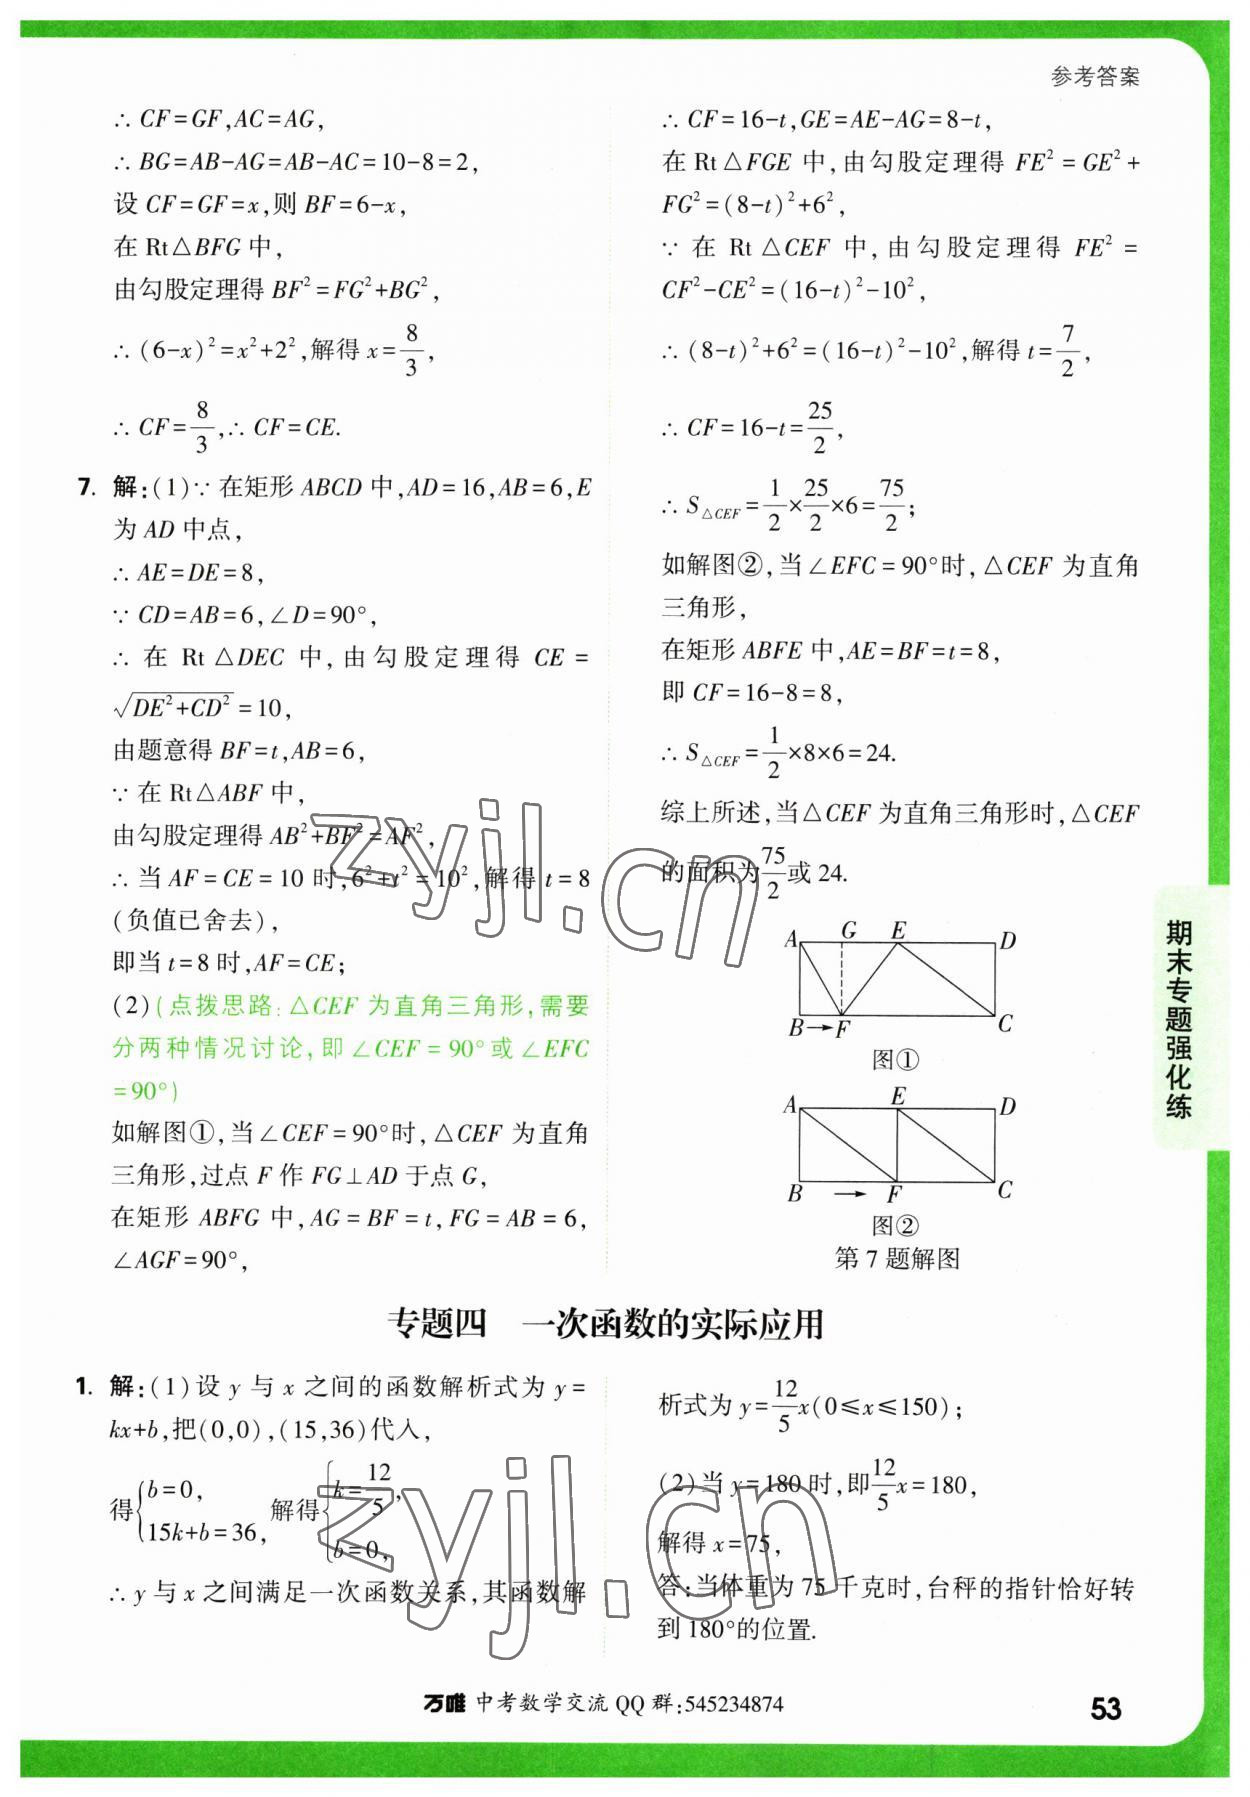 参考答案
∴ CF=GF,AC=AG,
∴ BG=AB-AG=AB-AC=10-8=2,
设 CF=GF=x,则 BF=6-x,
在 Rt△BFG 中,
由勾股定理得 BF²=FG²+BG²,
∴ (6-x)²=x²+2²,解得 x=8/3,
∴ CF=8/3,∴ CF=CE.
7. 解:(1)∵ 在矩形 ABCD 中,AD=16,AB=6,E
为 AD 中点,
∴ AE=DE=8,
∵ CD=AB=6,∠D=90°,
∴ 在 Rt△DEC 中,由勾股定理得 CE=
√(DE²+CD²)=10,
由题意得 BF=t,AB=6,
∵ 在 Rt△ABF 中,
由勾股定理得 AB²+BF²=AF²,
∴ 当 AF=CE=10 时,6²+t²=10²,解得 t=8
(负值已舍去),
即当 t=8 时,AF=CE;
(2)(点拨思路:△CEF 为直角三角形,需要
分两种情况讨论,即∠CEF=90°或∠EFC
=90°)
如解图①,当∠CEF=90°时,△CEF 为直角
三角形,过点 F 作 FG⊥AD 于点 G,
在矩形 ABFG 中,AG=BF=t,FG=AB=6,
∠AGF=90°,
∴ CF=16-t,GE=AE-AG=8-t,
在 Rt△FGE 中,由勾股定理得 FE²=GE²+
FG²=(8-t)²+6²,
∵ 在 Rt△CEF 中,由勾股定理得 FE²=
CF²-CE²=(16-t)²-10²,
∴ (8-t)²+6²=(16-t)²-10²,解得 t=7/2,
∴ CF=16-t=25/2,
∴ S△CEF=1/2×25/2×6=75/2;
如解图②,当∠EFC=90°时,△CEF 为直角
三角形,
在矩形 ABFE 中,AE=BF=t=8,
即 CF=16-8=8,
∴ S△CEF=1/2×8×6=24.
综上所述,当△CEF 为直角三角形时,△CEF
的面积为75/2或 24.
A G E D
B→F C
图①
A E D
B → F C
图②
第 7 题解图
期末专题强化练
专题四 一次函数的实际应用
1. 解:(1)设 y 与 x 之间的函数解析式为 y=
kx+b,把(0,0),(15,36)代入,
得{b=0, 15k+b=36, 解得{k=12/5, b=0,
∴ y 与 x 之间满足一次函数关系,其函数解
析式为 y=12/5x(0≤x≤150);
(2)当 y=180 时,即12/5x=180,
解得 x=75,
答:当体重为 75 千克时,台秤的指针恰好转
到 180°的位置.
万唯 中考数学交流 QQ 群:545234874
53
zyjl.cn
zyjl.cn